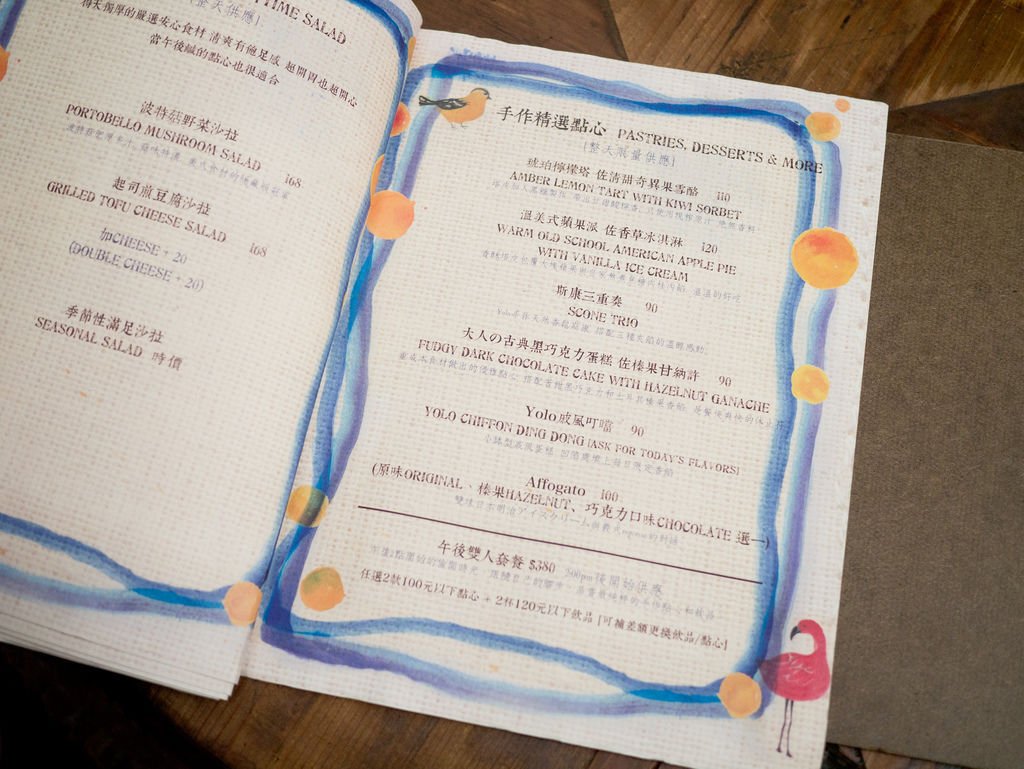 TIME SALAD
[整天供應]
得天獨厚的嚴選安心食材 清爽有飽足感 超開胃也超開心
當午後鹹的點心也很適合
波特菇野菜沙拉
PORTOBELLO MUSHROOM SALAD 168
起司煎豆腐沙拉
GRILLED TOFU CHEESE SALAD 168
加CHEESE + 20
(DOUBLE CHEESE + 20)
季節性滿足沙拉
SEASONAL SALAD 時價
手作精選點心 PASTRIES, DESSERTS & MORE
[整天限量供應]
琥珀檸檬塔 佐清甜奇異果雪酪 110
AMBER LEMON TART WITH KIWI SORBET
溫美式蘋果派 佐香草冰淇淋 120
WARM OLD SCHOOL AMERICAN APPLE PIE
WITH VANILLA ICE CREAM
斯康三重奏 90
SCONE TRIO
大人の古典黑巧克力蛋糕 佐榛果甘納許 90
FUDGY DARK CHOCOLATE CAKE WITH HAZELNUT GANACHE
Yolo戚風叮噹 90
YOLO CHIFFON DING DONG [ASK FOR TODAY'S FLAVORS]
Affogato 100
(原味ORIGINAL、榛果HAZELNUT、巧克力口味CHOCOLATE 選一)
午後雙人套餐 $380 2:00pm後開始供應
任選2款100元以下點心 + 2杯120元以下飲品 [可補差額更換飲品/點心]